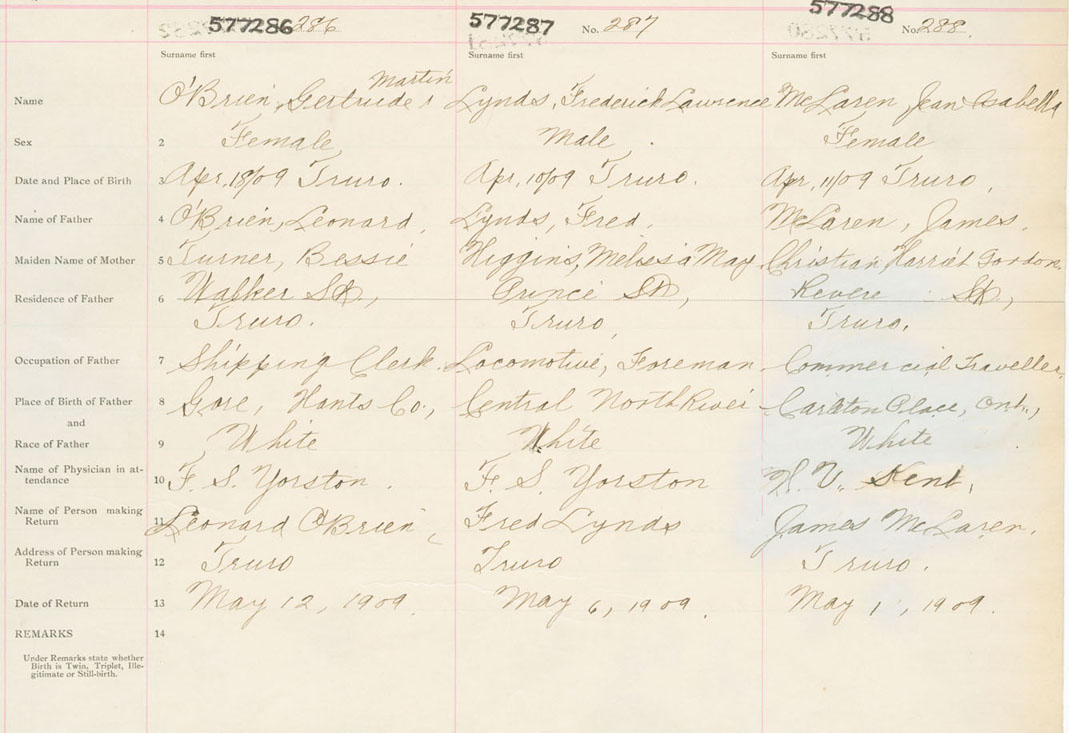 577286 286
577287 No. 287
577288 No. 288.
Surname first
Surname first
Surname first
Martin
Name O'Brien, Gertrude Lynds, Frederick Lawrence McLaren, Jean Isabella
Sex 2 Female, Male. Female
Date and Place of Birth 3 Apr, 18/09 Truro. Apr, 10/09 Truro. Apr, 11/09 Truro,
Name of Father 4 O'Brien, Leonard, Lynds, Fred, McLaren, James.
Maiden Name of Mother 5 Turner, Bessie Higgins, Melissa May. Christian, Harriet Gordon.
Residence of Father 6 Walker St, Prince St, Revere St,
Truro. Truro, Truro.
Occupation of Father 7 Shipping Clerk. Locomotive, Foreman. Commercial Traveller.
Place of Birth of Father 8 Gore, Hants Co., Central North River Carleton Place, Ont.,
and
Race of Father 9 White White White
Name of Physician in at-
tendance 10 F. S. Yorston. F. S. Yorston H. V. Kent,
Name of Person making
Return 11 Leonard O'Brien Fred Lynds James McLaren.
Address of Person making
Return 12 Truro Truro Truro.
Date of Return 13 May 12, 1909. May 6, 1909. May 1, 1909.
REMARKS 14
Under Remarks state whether
Birth is Twin, Triplet, Ille-
gitimate or Still-birth.